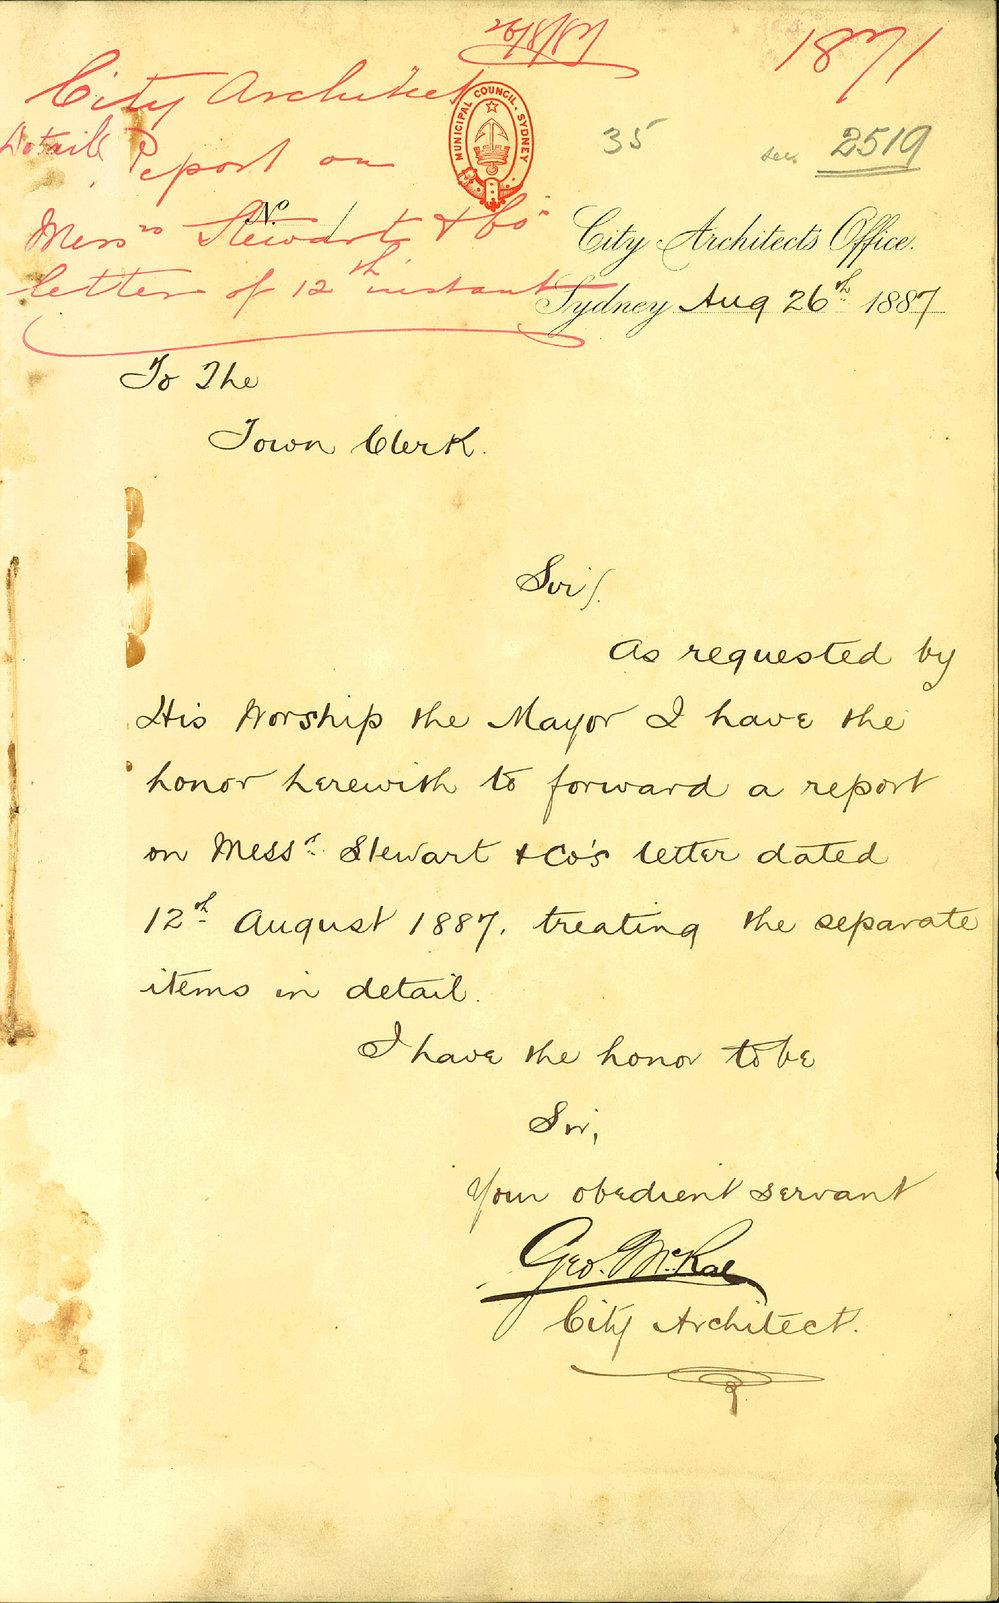 26/8/87
1871
City Architect
Detail Report on
Messrs Stewart & Co's
letter of 12th instant
MUNICIPAL COUNCIL. SYDNEY
35
see 2519
No
City Architect's Office.
Sydney Aug 26th 1887
To The
Town Clerk.
Sir/.
As requested by
His Worship the Mayor I have the
honor herewith to forward a report
on Messrs Stewart & Co's letter dated
12th August 1887. treating the separate
items in detail.
I have the honor to be
Sir,
Your obedient servant
Geo. McRae
City Architect.